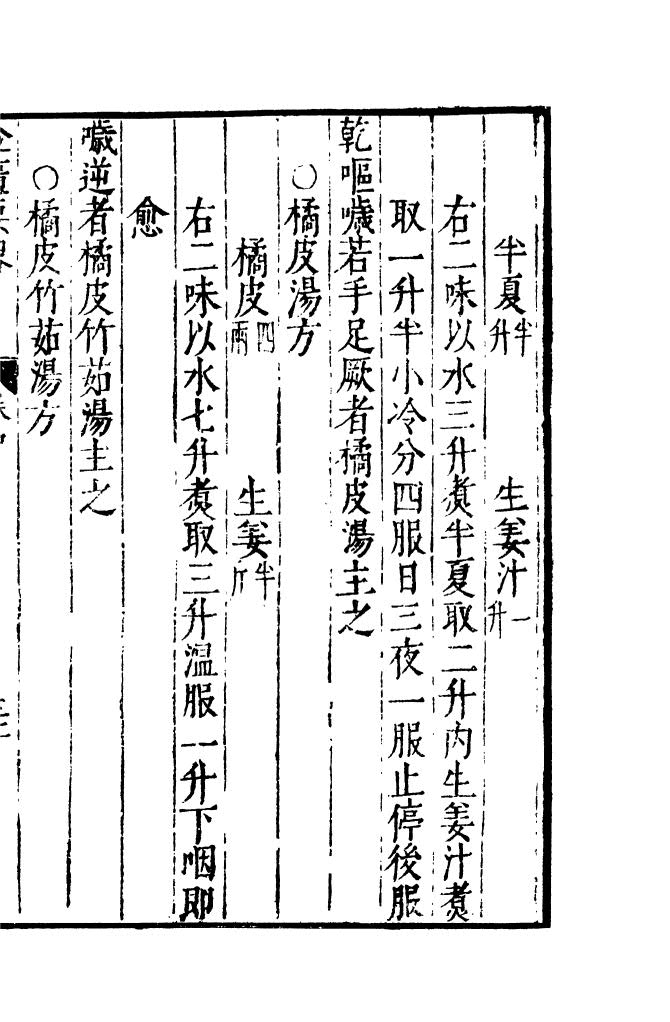 半夏半升 生姜汁一升
右二味以水三升煑半夏取二升内生姜汁煑
取一升半小冷分四服日三夜一服止停後服
乾嘔噦若手足厥者橘皮湯主之
○橘皮湯方
橘皮四兩 生姜半斤
右二味以水七升煑取三升溫服一升下咽即
愈
噦逆者橘皮竹茹湯主之
○橘皮竹茹湯方